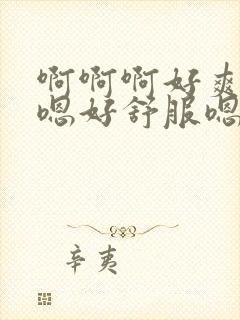 啊啊啊好爽
嗯好舒服嗯
辛夷